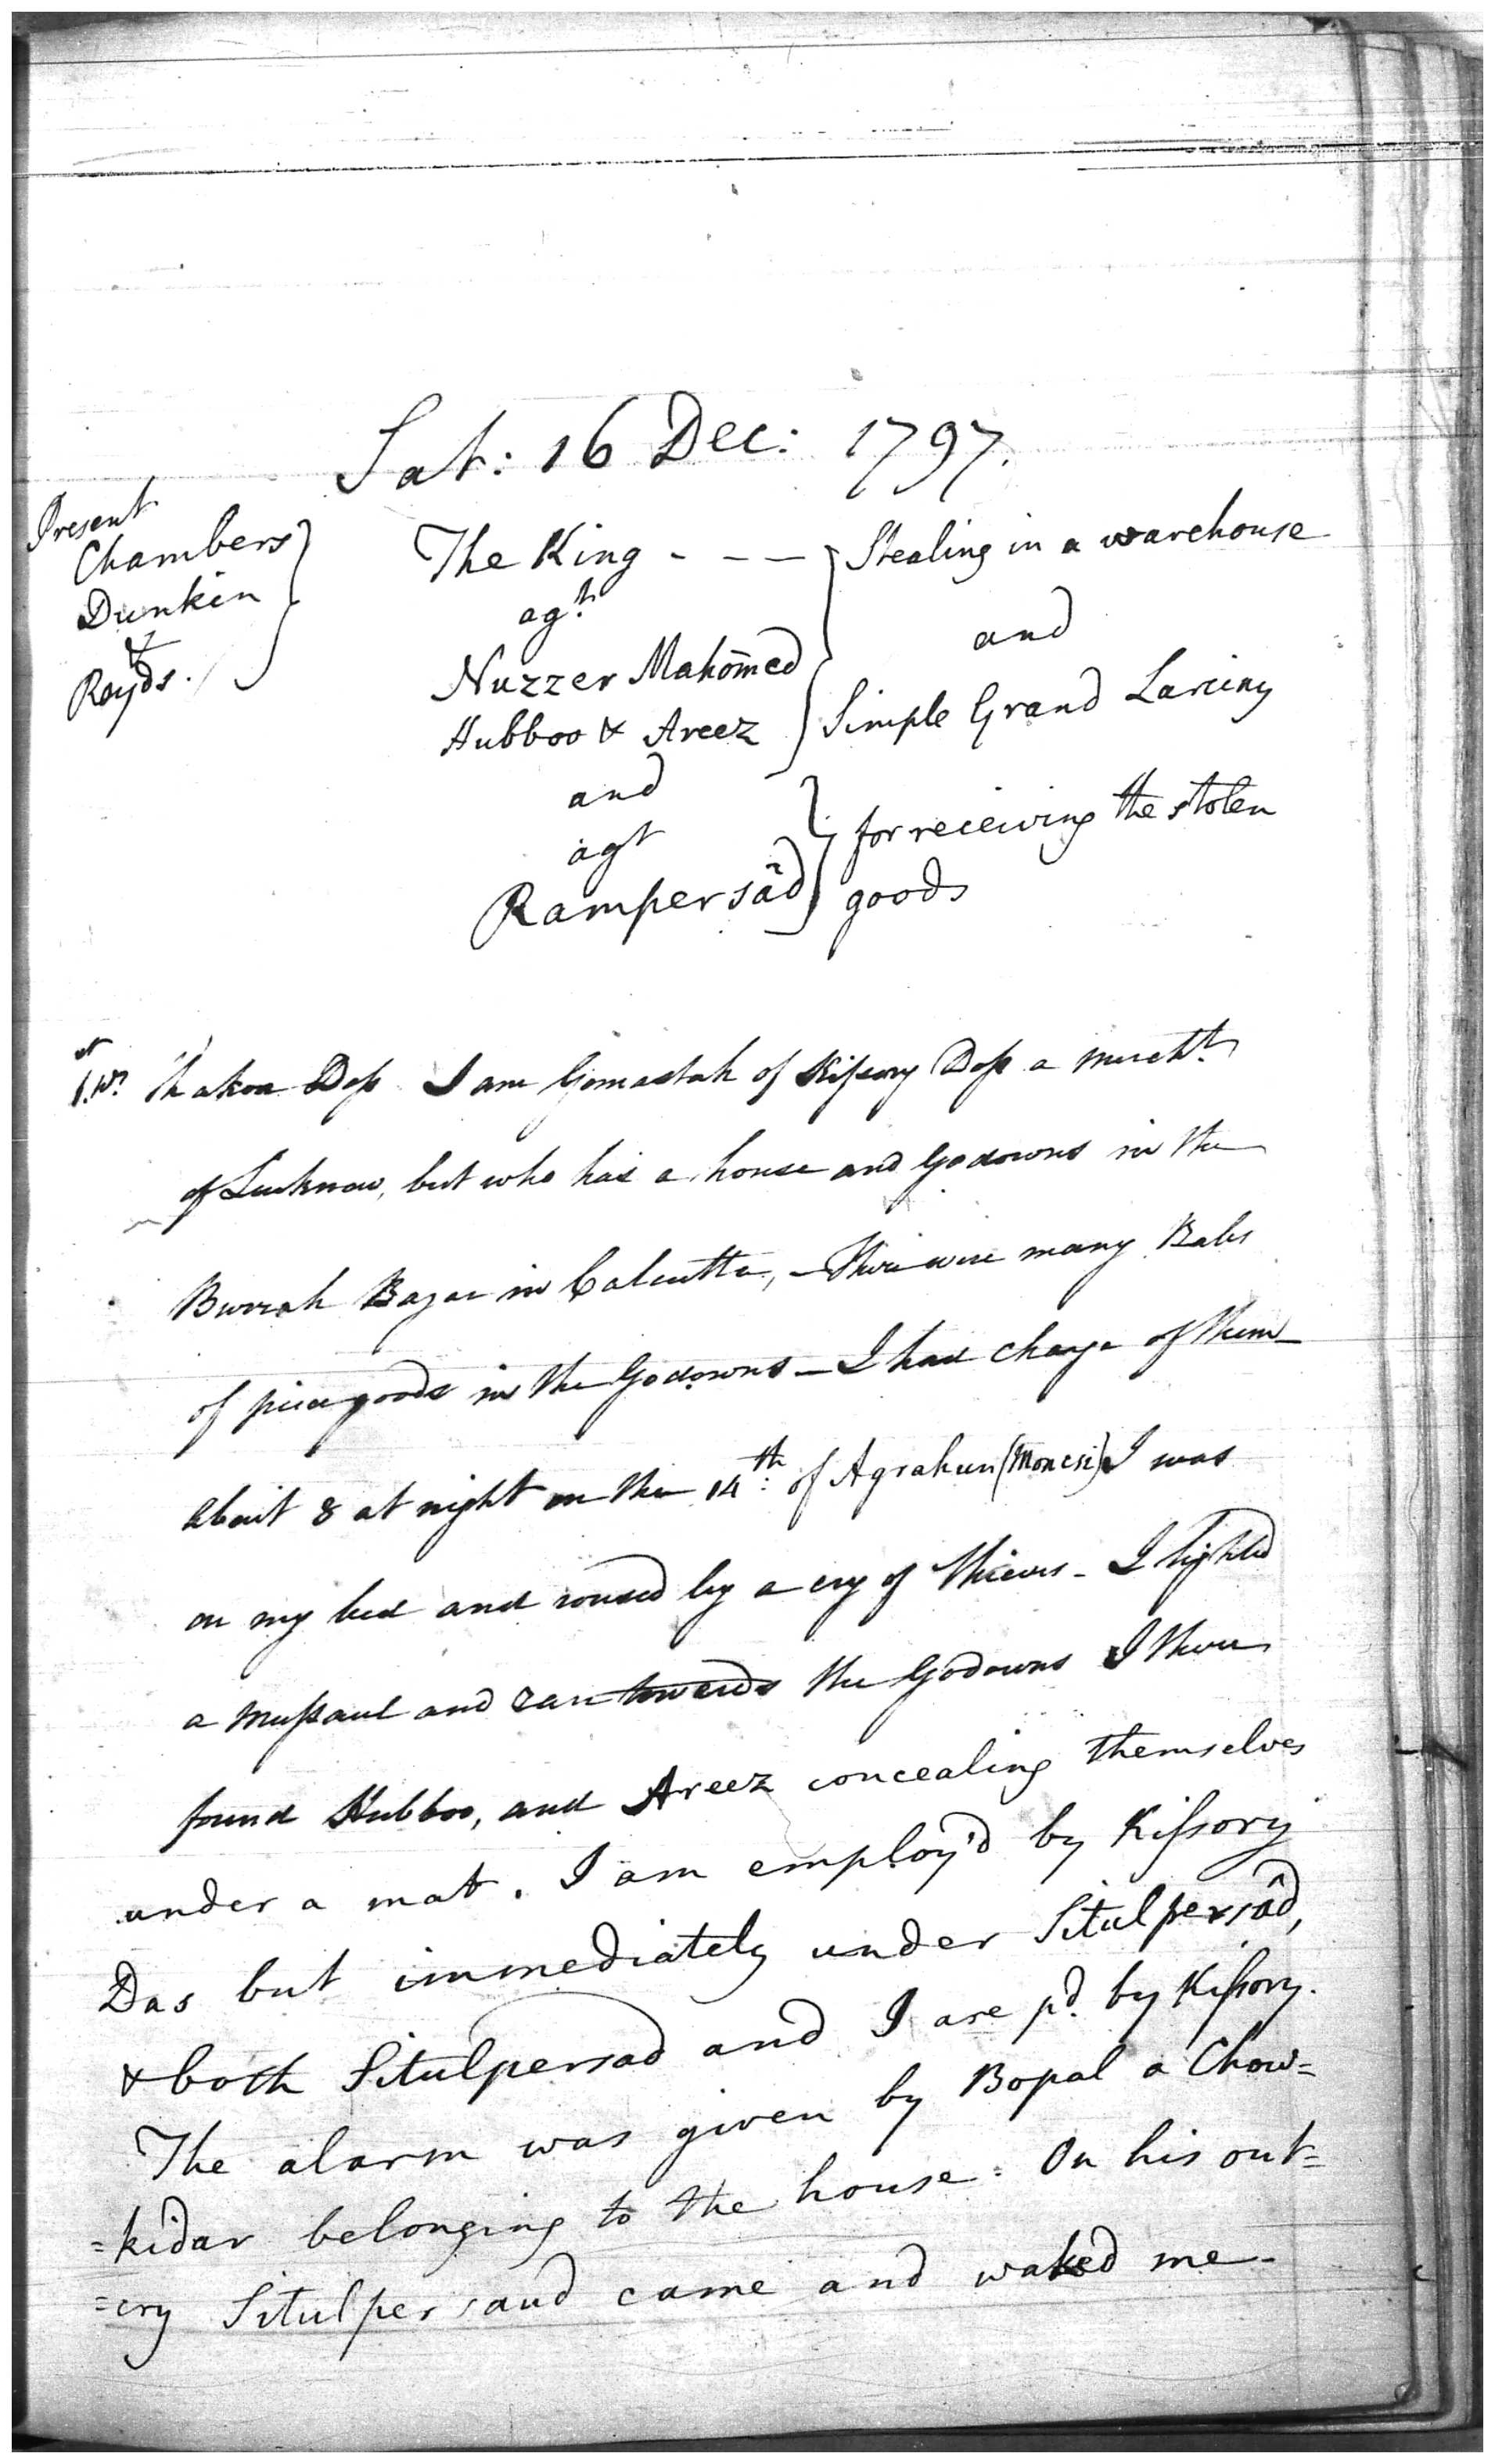 Sat: 16 Dec: 1797.
Present
Chambers
Dunkin
&
Royds.
The King - - - Stealing in a warehouse
agt and
Nuzzer Mahomed
Hubboo & Areez Simple Grand Larciny
and
agt for receiving the stolen
Rampersâd goods
1st W. Thakoa Doss I am Gomastah of Kissory Doss a mercht
of Lucknow, but who has a house and Godowns in the
Burrah Bazar in Calcutta, - There were many Bales
of piece goods in the Godowns - I had charge of them
about 8 at night on the 14th: of Agrahun I was
on my bed and roused by a cry of thieves - I lighted
a Mussaul and ran towards the Godowns I there
found Hubboo, and Areez concealing themselves
under a mat. I am employ'd by Kissory
Das but immediately under Situlpersâd,
& both Situlpersad and I are pd. by Kissory.
The alarm was given by Bopal a Chow=
=kidar belonging to the house. On his out=
=cry Situlpersaud came and waked me-